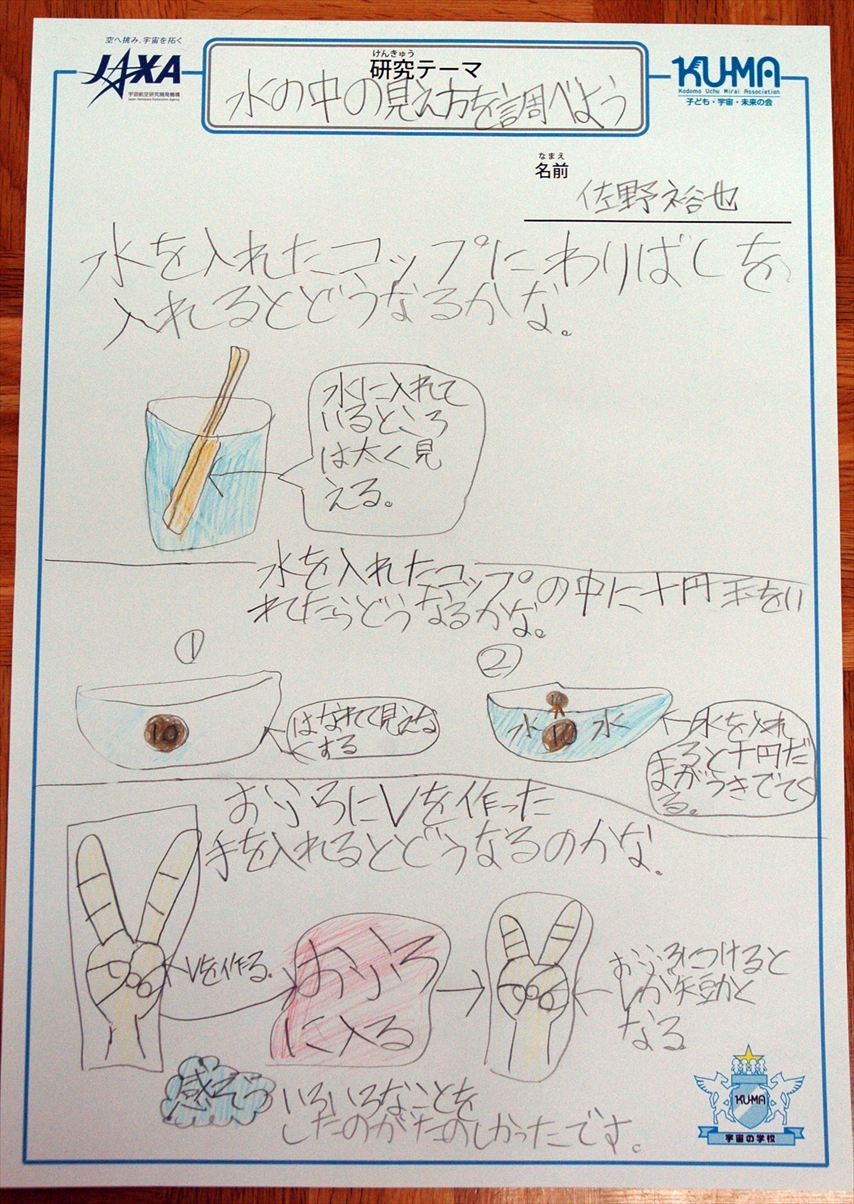 空へ挑み、宇宙を拓く
JAXA
宇宙航空研究開発機構
Japan Aerospace Exploration Agency
けんきゅう
研究テーマ
水の中の見え方を調べよう
KU-MA
Kodomo Uchu Mirai Association
子ども・宇宙・未来の会
なまえ
名前
佐野裕也
水を入れたコップにわりばしを
入れるとどうなるかな。
水に入れて
いるところ
は太く見
える。
水を入れたコップの中に十円玉をい
れてたらどうなるかな。
①
②
10
はなれて見えな
くする
10
水
10
水
水を入れ
ると十円だ
まがうきでてく
る。
おふろにVを作った
手を入れるとどうなるのかな。
Vを作る。
おふろ
に入る
おふろにつけると
Vが短かく
なる
感そう
いろいろなことを
したのがたのしかったです。
KU-MA
宇宙の学校